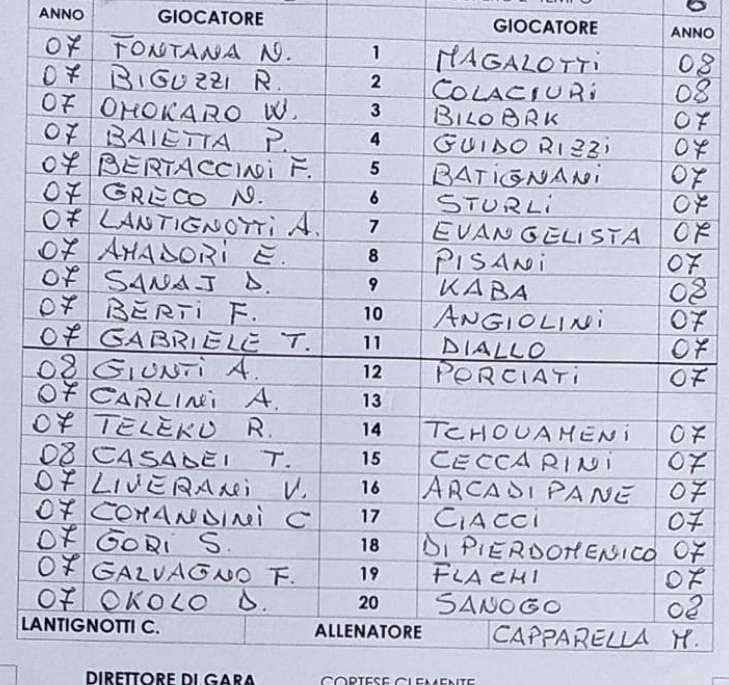 ANNO GIOCATORE GIOCATORE ANNO
07 FONTANA N. 1 MAGALOTTI 08
07 BIGUZZI R. 2 COLACIURI 08
07 OMOKARO W. 3 BILOBRK 07
07 BAIETTA P. 4 GUIDORIZZI 07
07 BERTACCINI F. 5 BATIGNANI 07
07 GRECO N. 6 STURLI 07
07 LANTIGNOTTI A. 7 EVANGELISTA 07
07 AMADORI E. 8 PISANI 07
07 SANAJ D. 9 KABA 08
07 BERTI F. 10 ANGIOLINI 07
07 GABRIELE T. 11 DIALLO 07
08 GIUNTI A. 12 PORCIATI 07
07 CARLINI A. 13
07 TELEKU R. 14 TCHOUAMENI 07
08 CASADEI T. 15 CECCARINI 07
07 LIVERANI V. 16 ARCADIPANE 07
07 COMANDINI C 17 CIACCI 07
07 GORI S. 18 DI PIERDOMENICO 07
07 GALVAGNO F. 19 FLACHI 07
07 OKOLO D. 20 SANOGO 08
LANTIGNOTTI C. ALLENATORE CAPPARELLA M.
DIRETTORE DI GARA CORTESE CLEMENTE